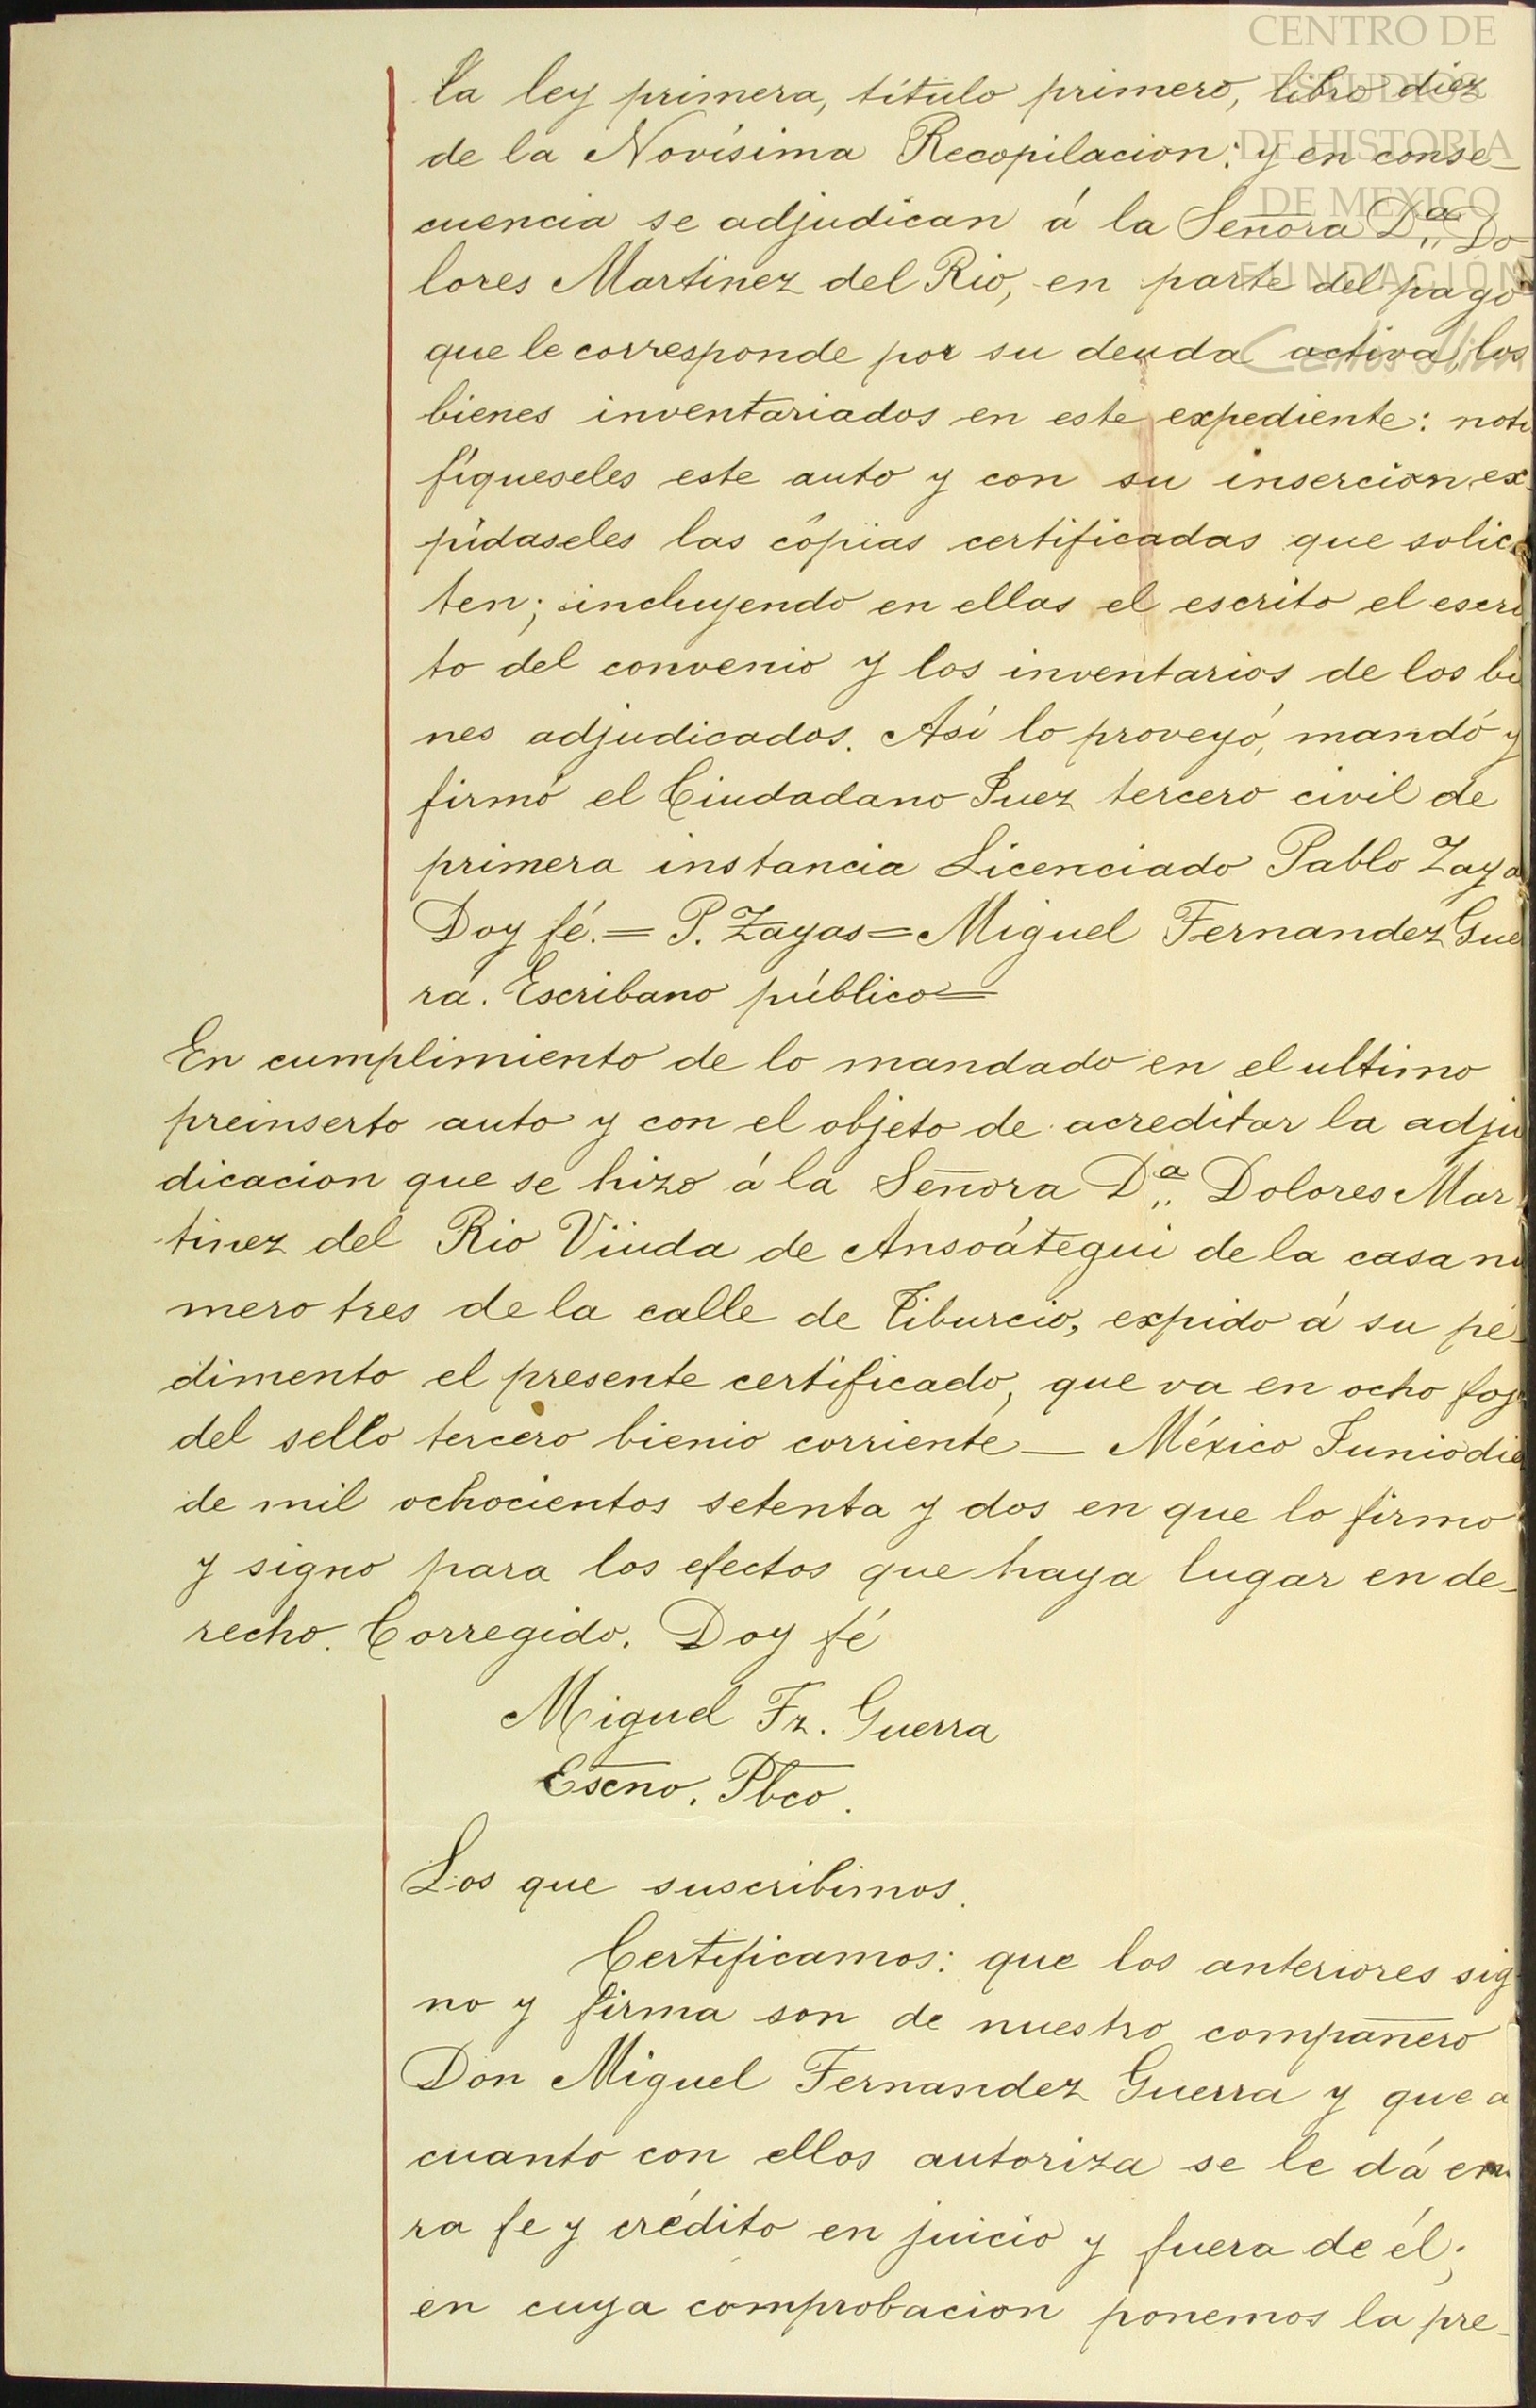 CENTRO DE
ESTUDIOS
DE HISTORIA
DE MEXICO
FUNDACIÓN
Carlos Slim
la ley primera, título primero, libro diez
de la Novísima Recopilacion: y en conse-
cuencia se adjudican á la Señora D.ª Do-
lores Martinez del Rio, en parte del pago
que le corresponde por su deuda activa, los
bienes inventariados en este expediente: noti
fíqueseles este auto y con su insercion ex-
pídaseles las cópias certificadas que solici
ten; incluyendo en ellas el escrito el escri
to del convenio y los inventarios de los bi
nes adjudicados. Así lo proveyó, mandó y
firmó el Ciudadano Juez tercero civil de
primera instancia Licenciado Pablo Zaya
Doy fé.= P. Zayas= Miguel Fernandez Gue
ra. Escribano público=
En cumplimiento de lo mandado en el ultimo
preinserto auto y con el objeto de acreditar la adju
dicacion que se hizo á la Señora D.ª Dolores Mar
tinez del Rio Viuda de Ansoátegui de la casa nu
mero tres de la calle de Tiburcio, expido á su pe-
dimento el presente certificado, que va en ocho foj
del sello tercero bienio corriente — México Junio die
de mil ochocientos setenta y dos en que lo firmo
y signo para los efectos que haya lugar en de-
recho. Corregido. Doy fé
Miguel Fz. Guerra
Escno. Pbco.
Los que suscribimos.
Certificamos: que los anteriores sig
no y firma son de nuestro compañero
Don Miguel Fernandez Guerra y que a
cuanto con ellos autoriza se le dá en
ra fe y crédito en juicio y fuera de él;
en cuya comprobacion ponemos la pre-